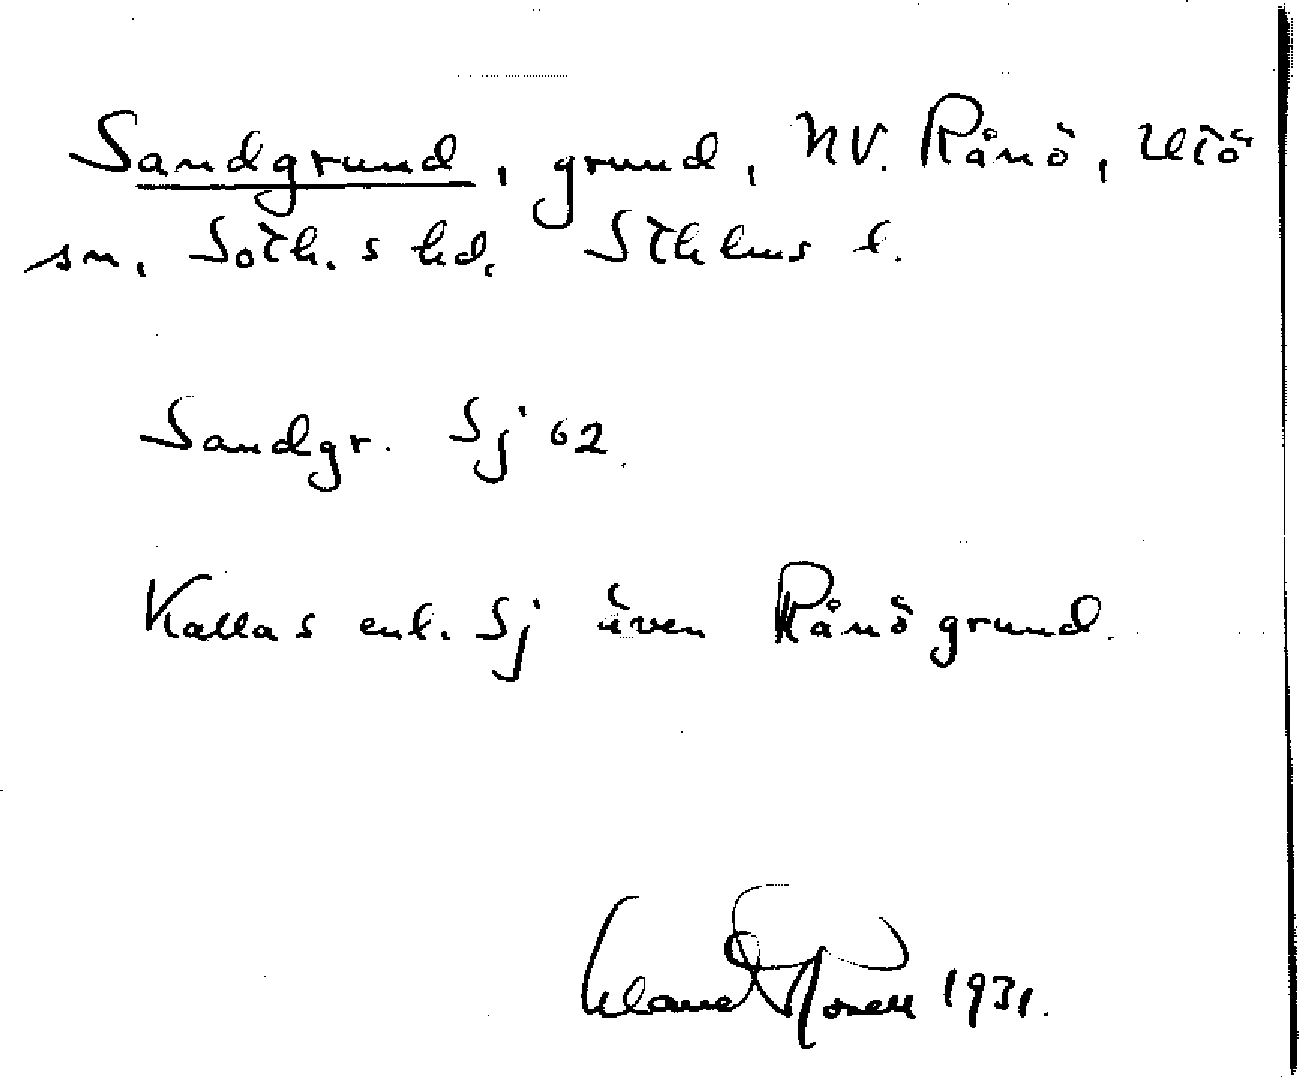 Sandgrund, grund, NV. Rånö, Utö
sn. Soth.s hd. Sthlms l.
Sandgr. Sj 62.
Kallas enl. Sj även Rånögrund.
1931.